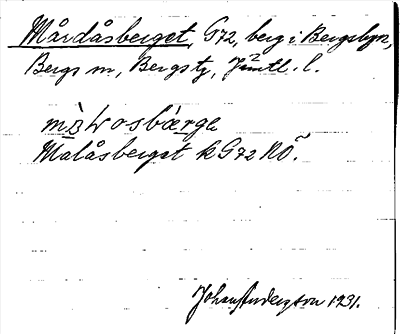 Mårdåsberget, G72, berg i Bergsbyn,
Bergs sn, Bergs tg, Jämtl. l.
Malåsberget k G72 NÖ.
Johan Anderzson 1931.